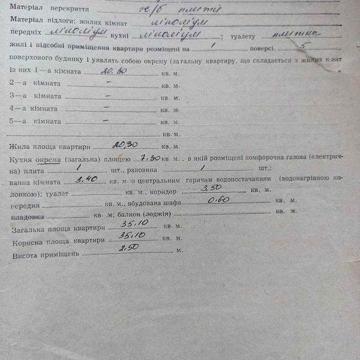 Матеріал перекриття з/б плити
Матеріал підлоги: жилих кімнат лінолеум
передніх лінолеум кухні лінолеум; туалету плитка
жилі і підсобні приміщення квартири розміщені на 1 поверсі 5
поверхового будинку і уявлять собою окрему (загальну квартиру, що складається з жилих кімнат
із них 1—а кімната 20.30 кв. м.
2—а кімната — кв. м.
3—а кімната — кв. м.
4—а кімната — кв. м.
5—а кімната — кв. м.
кв. м.
Жила площа квартири 20,30 кв. м.
Кухня окрема (загальна) площею 7.30 кв. м., в якій розміщені комфорочна газова (електрич-
на) плита 1 шт., раковина 1 шт.;
ванна кімната 2.40 кв. м. з центральним гарячим водопостачанням (водонагрівною ко-
лонкою); туалет кв. м., коридор 3.50 кв. м.
передня кв. м., вбудована шафа 0.60 кв. м.
кладовка кв. м; балкон (лоджія) кв. м.
Загальна площа квартири 35.10 кв. м.
Корисна площа квартири 35.10 кв. м.
Висота приміщень 2.50 м.